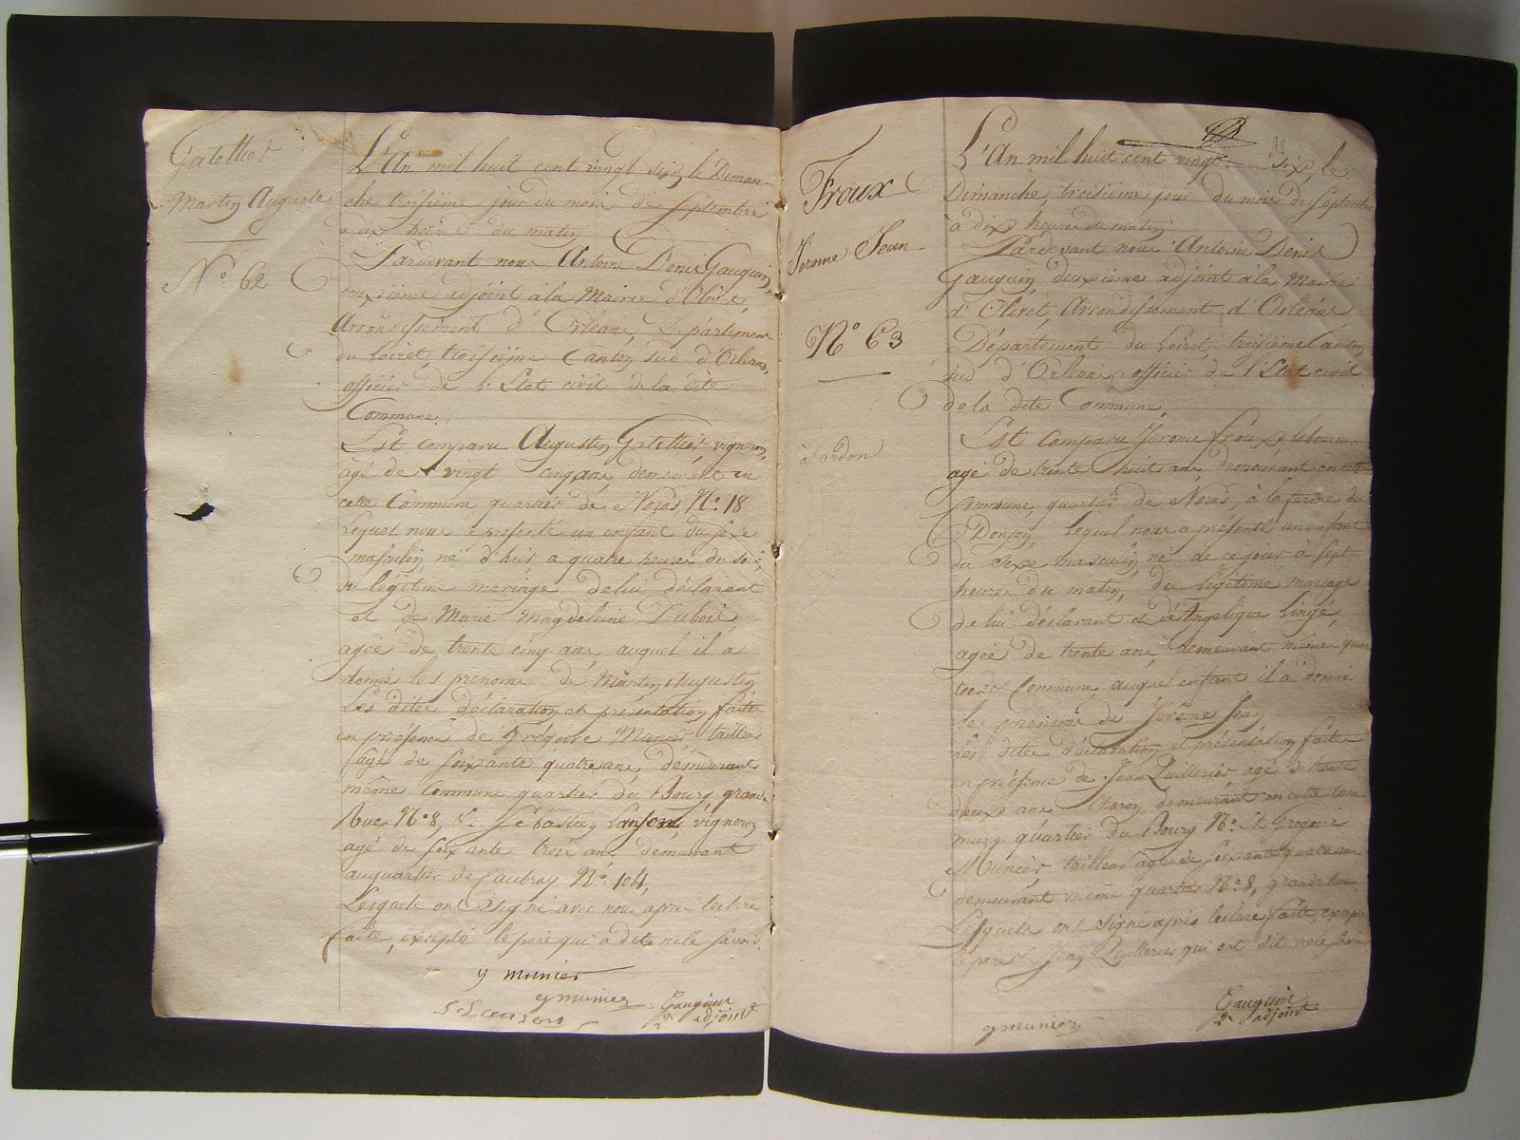 Gatellier
Martin Auguste
N° 62
L'An mil huit cent vingt six, le Diman-
che troisième jour du mois de Septembre
à dix heures du matin
Pardevant nous Antoine Denis Gauguin,
deuxième adjoint à la Mairie d'Olivet,
Arrondissement d'Orléans, Département
du Loiret, troisième Canton Sud d'Orléans,
officier de l'Etat civil de la dite
Commune.
Est comparu Augustin Gatellier vigneron,
agé de vingt cinq ans, demeurant en
cette Commune quartier de Noras N° 18
lequel nous a présenté un enfant du sexe
masculin né d'hier a quatre heures du soir,
du légitime mariage de lui déclarant
et de Marie Magdeleine Dubois
agée de trente cinq ans, auquel il a
donné les prenoms de Martin Augustin
Les dites déclaration et présentation faites
en présence de Grégoire Munier tailleur
agé de soixante quatre ans, demeurant
même Commune quartier du Bourg grande
Rue N° 8, & Sébastien Lanson vigneron
agé de soixante trois ans, demeurant
au quartier de Caubray N° 104,
Lesquels ont signé avec nous après lecture
faite, excepté le père qui a dit ne le savoir.
g munier
g munier
S. Lanson
Gauguin
adjoint
Froux
Jerome Jean
N° 63
à Sardon
L'An mil huit cent vingt six, le
Dimanche, troisième jour du mois de Septembre
à dix heures du matin
Pardevant nous Antoine Denis
Gauguin deuxième adjoint à la Mairie
d'Olivet, Arrondissement d'Orléans
Département du Loiret, troisième Canton
sud d'Orléans, officier de l'Etat civil
de la dite Commune,
Est Comparu Jérome Froux
agé de trente huit ans demeurant en cette
Commune quartier de Noras, à la ferme du
Donjon, lequel nous a présenté un enfant
du sexe masculin, né de ce jour à sept
heures du matin, du légitime mariage
de lui déclarant et d'Angélique Lingé,
agée de trente ans demeurant même quar-
tier & Commune, auquel enfant il a donné
les prenoms de Jérôme Jean,
Les dites déclaration et présentation faites
en présence de Jean Quillerier agé de trente
deux ans, Charon, demeurant en cette Com-
mune, quartier du Bourg N° & Grégoire
Munier, tailleur agé de soixante quatre ans
demeurant même quartier N° 8, grande Rue
Lesquels ont signé après lecture faite, excepté
le père & Jean Quillerier qui ont dit ne le savoir
g munier
Gauguin
adjoint